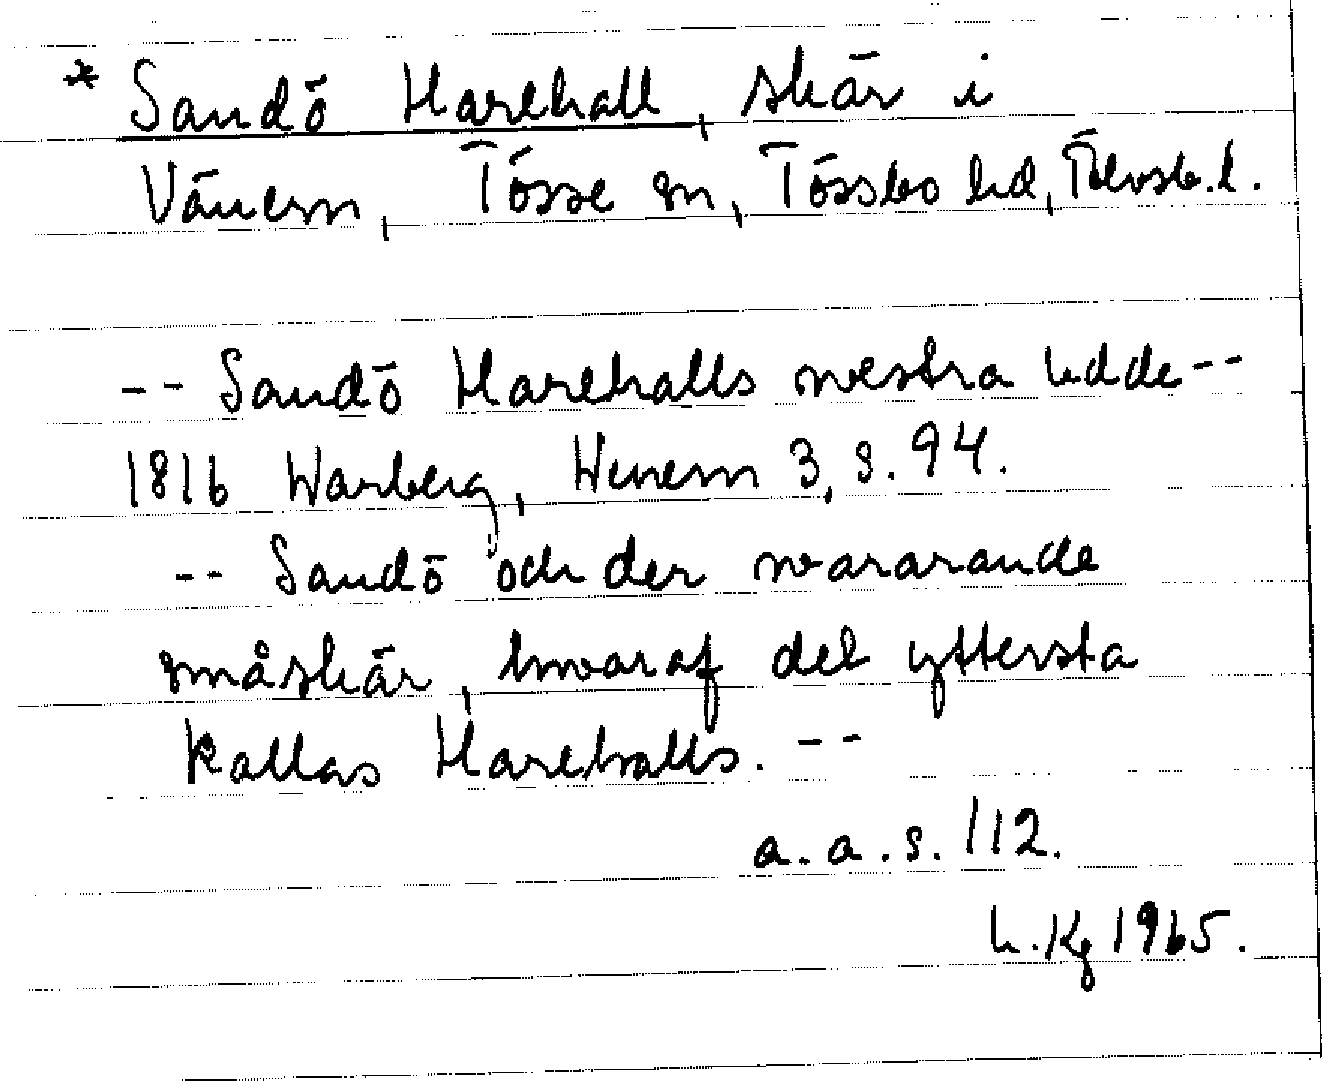 * Sandö Harehall, skär i
Vänern, Tösse sn, Tössbo hd, Älvsb. l.
-- Sandö Harehalls westra udde --
1816 Warberg, Wenern 3, s. 94.
-- Sandö och der wararande
småskär, hwaraf det yttersta
kallas Harehalls. --
a. a. s. 112.
1965.